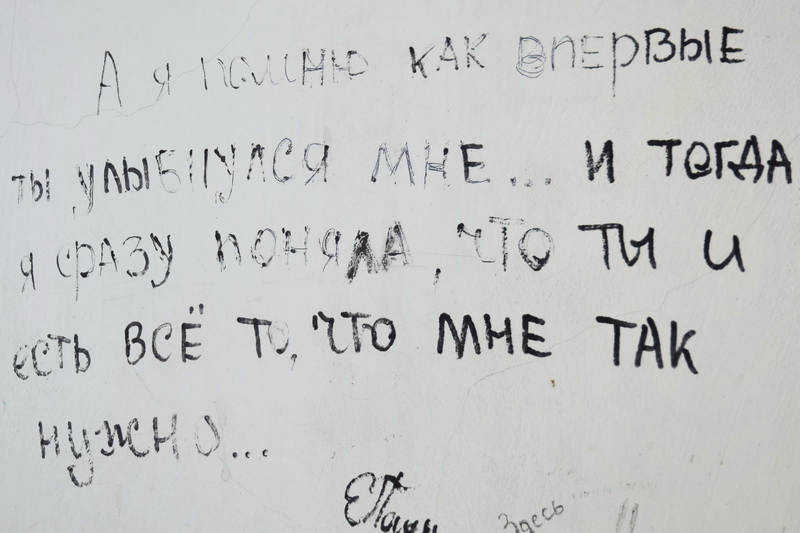 А я помню как впервые
ты улыбнулся мне... и тогда
я сразу поняла, что ты и
есть всё то, что мне так
нужно...
Здесь